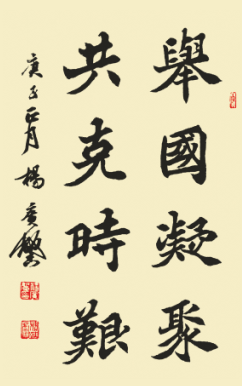 舉國凝聚
共克時艱
庚子正月 楊廣馨